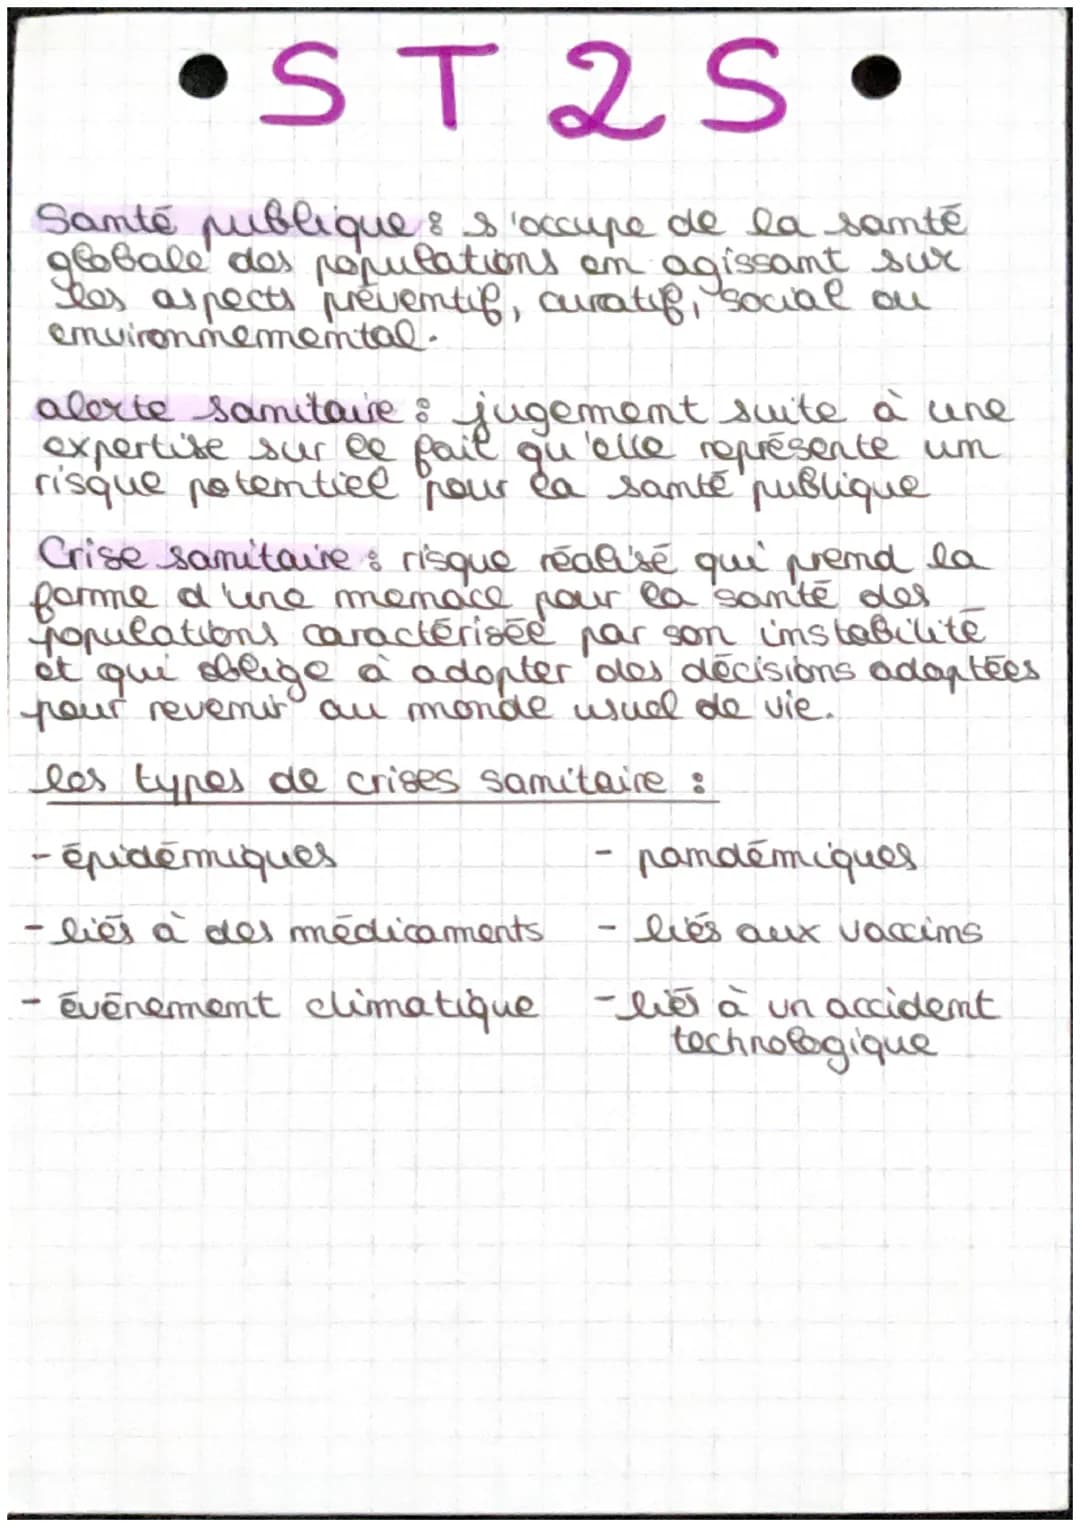 • S T 2 S •
Santé publique : s'occupe de la santé
globale des populations en agissant sur
les aspects préventif, curatif, social ou
environnemental.
alerte sanitaire : jugement suite à une
expertise sur le fait qu'elle représente un
risque potentiel pour la santé publique
Crise sanitaire : risque réalisé qui prend la
forme d'une menace pour la santé des
populations caractérisée par son instabilité
et qui oblige à adopter des décisions adaptées
pour revenir au monde usuel de vie.
les types de crises sanitaire :
- épidémiques - pandémiques
- liés à des médicaments - liés aux vaccins
- événement climatique - liés à un accident
technologique